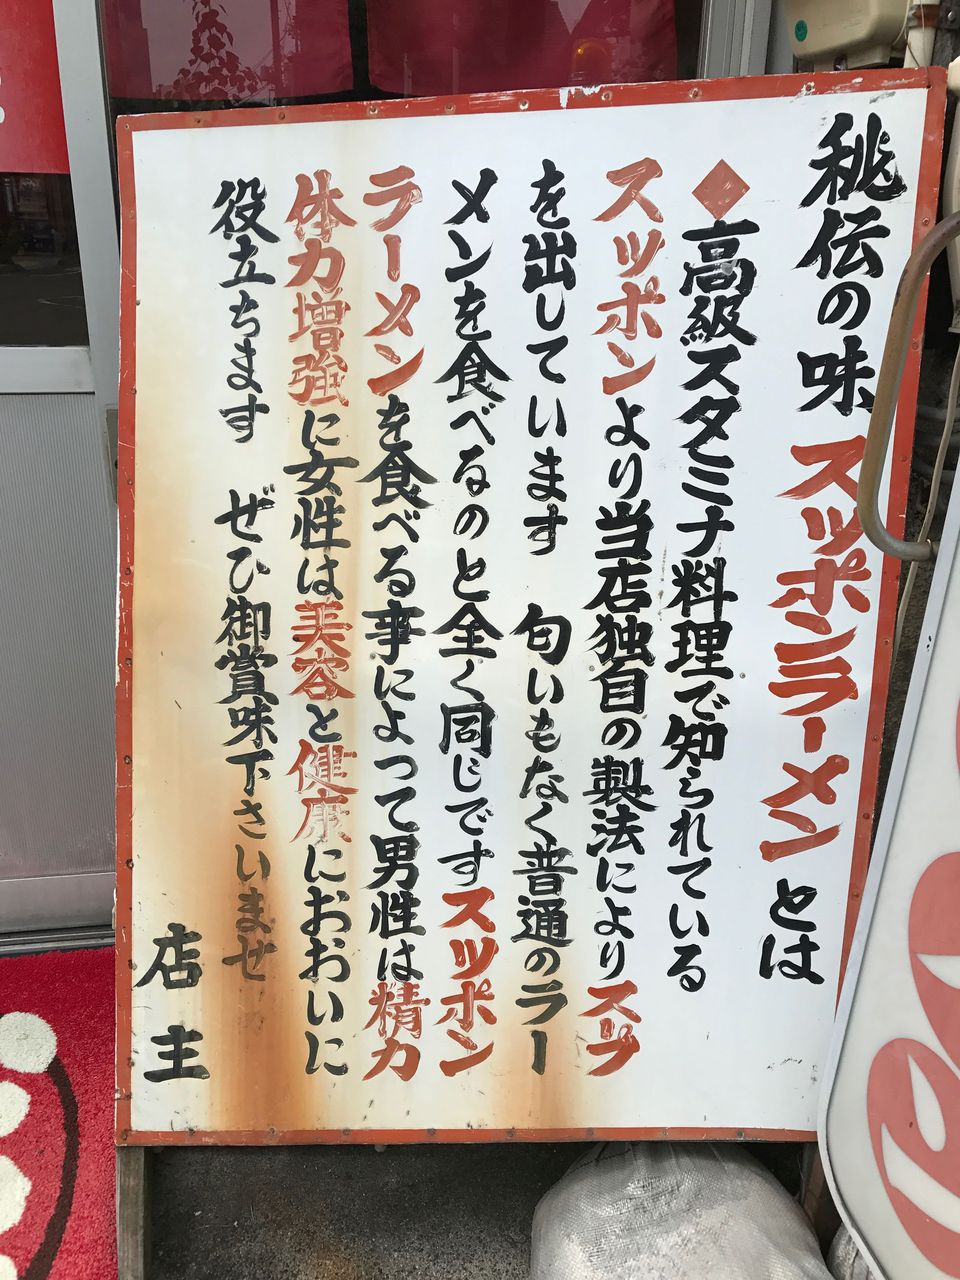 秘伝の味 スッポンラーメン とは
◆高級スタミナ料理で知られている
スッポンより当店独自の製法によりスープ
を出しています 匂いもなく普通のラー
メンを食べるのと全く同じですスッポン
ラーメンを食べる事によって男性は精力
体力増強に女性は美容と健康におおいに
役立ちます ぜひ御賞味下さいませ
店主